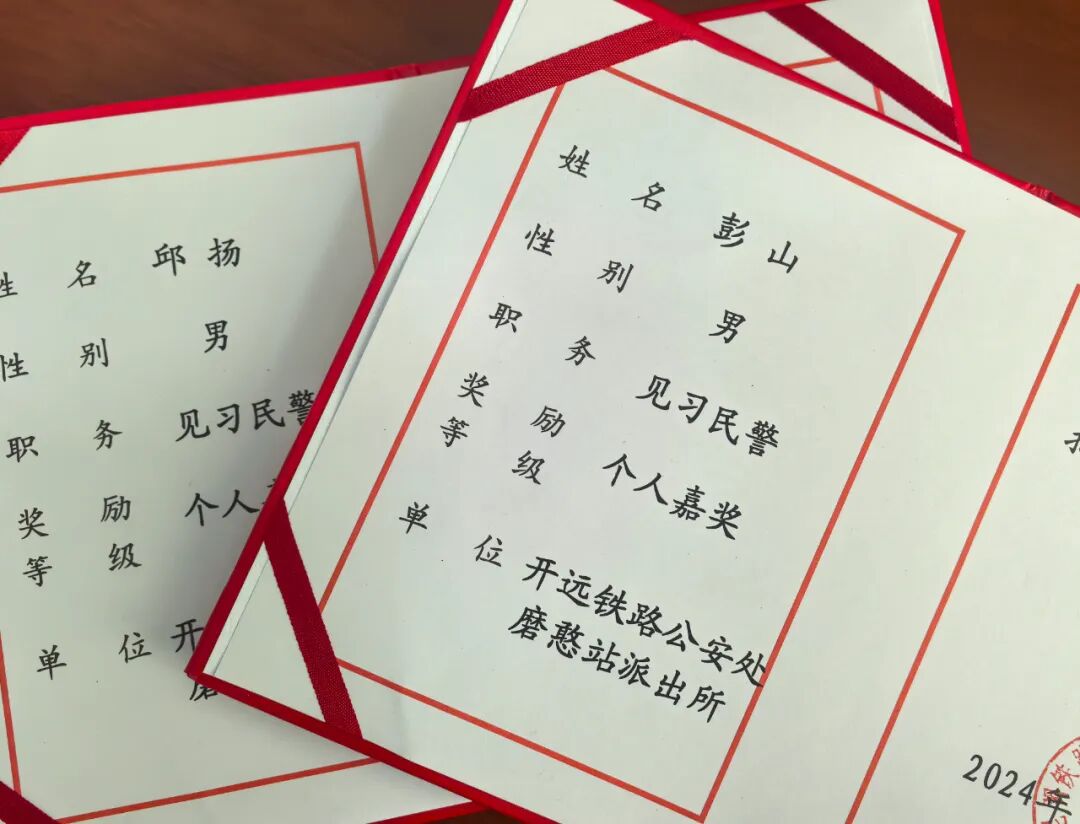 姓名 邱扬
性别 男
职务 见习民警
奖励等级 个人
单位 开
姓名 彭山
性别 男
职务 见习民警
奖励等级 个人嘉奖
单位 开远铁路公安处
磨憨站派出所
2024年